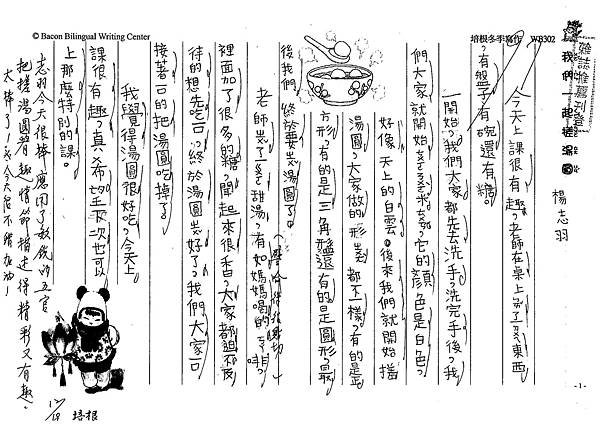 © Bacon Bilingual Writing Center
培根冬季寫作 W8302
雜誌推薦刊登
我們一起搓湯圓
楊志羽
今天上課很有趣,老師在桌上放了東西
,有盤子有碗還有糖。
一開始,我們大家都先去洗手,洗完手後,我
們大家就開始
它的顏色是白色,
好像天上的白雲。後來我們就開始搓
湯圓,大家做的形狀都不一樣,有的是
方形,有的是三角形還有的是圓形,最
後我們終於要煮湯圓了。
老師煮了
甜湯,有如媽媽喝的
啡,
裡面加了很多的糖,聞起來很香,大家都迫不及
待的想先吃一口,終於湯圓煮好了,我們大家一口
接著一口的把湯圓吃掉了。
我覺得湯圓很好吃,今天上
課很有趣,真希望下次也可以
上那麼特別的課。
志羽今天很棒,應用了教的五官
把搓湯圓有趣情節描述得精彩又有趣。
太棒了!
今天
培根
-1-